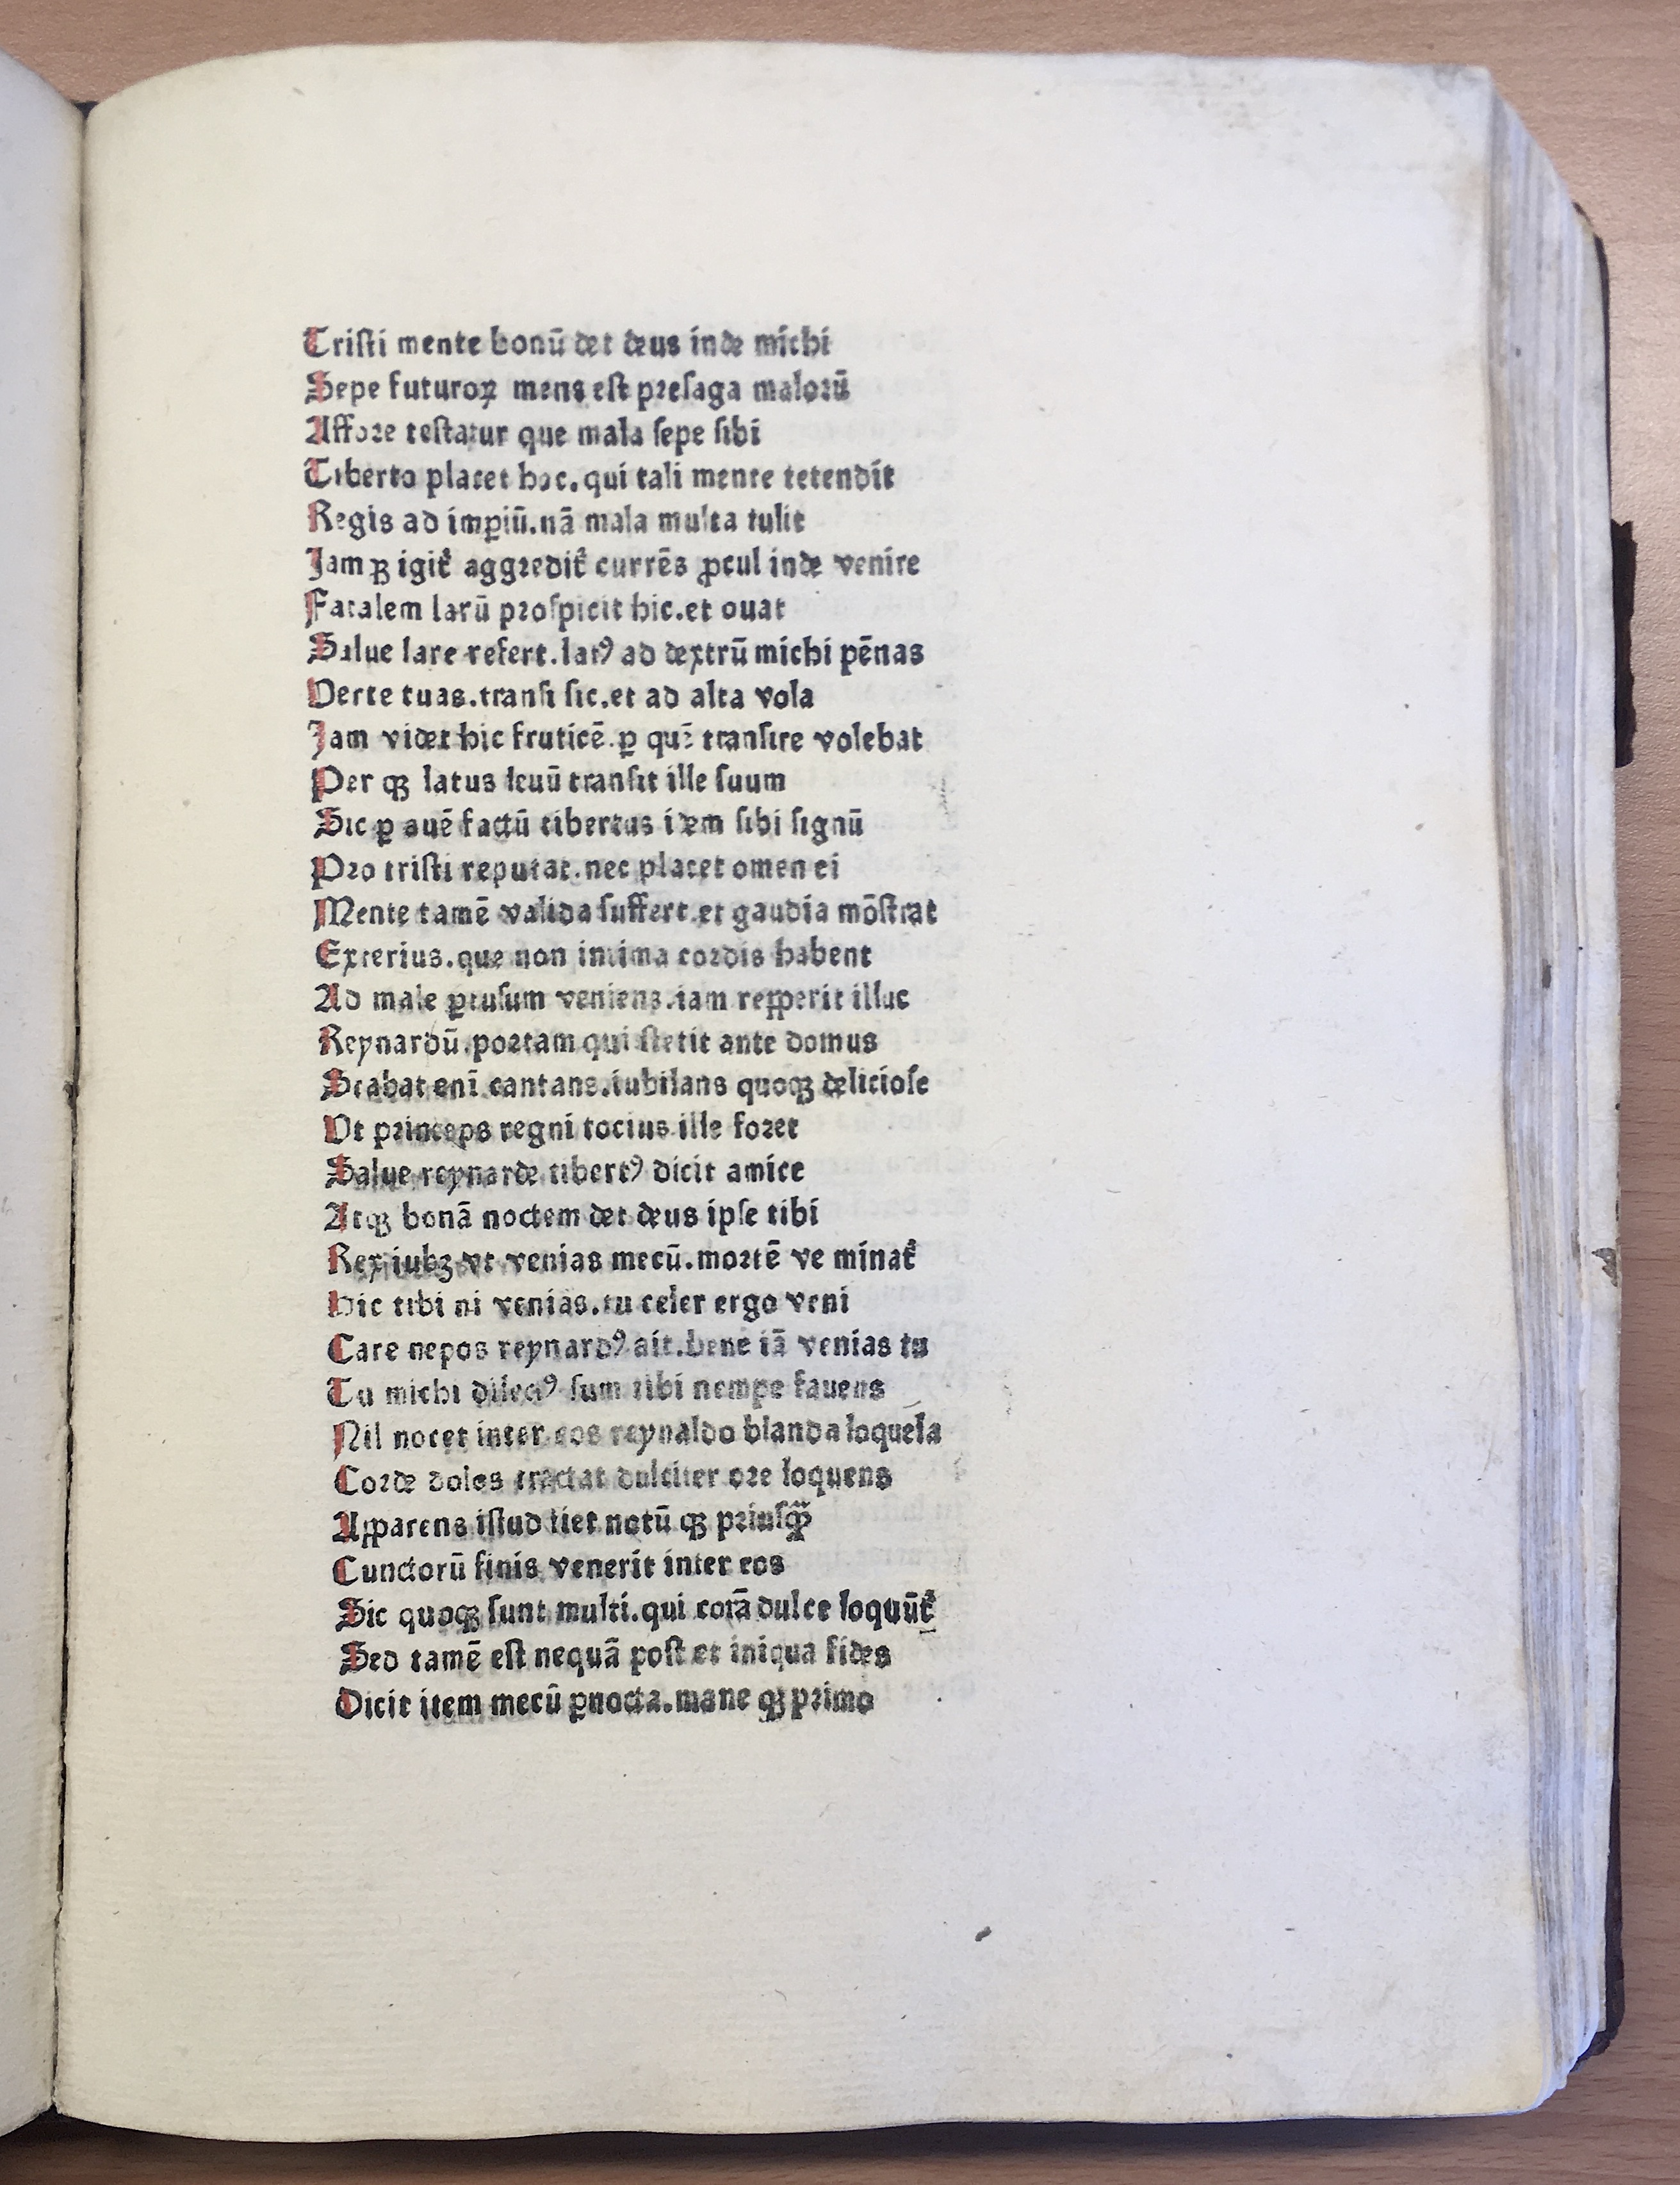 Tristi mente bonū det deus inde michi
Sepe futuroꝝ mens est presaga malorū
Affore testatur que mala sepe sibi
Tiberto placet hoc. qui tali mente tetendit
Regis ad imꝑiū. nā mala multa tulit
Jam igit᷑ aggredit᷑ currēs ꝓcul inde venire
Fatalem larū prospicit hic. et ouat
Salue lare refert. latꝰ ad dextrū michi pēnas
Verte tuas. transi sic. et ad alta vola
Jam videt hic fruticē. ꝑ quē transire volebat
Per qꝫ latus leuū transit ille suum
Sic ꝑ auē factū tibertus idem sibi signū
Pro tristi reputat. nec placet omen ei
Mente tamē valida suffert. et gaudia mōstrat
Exterius. que non intima cordis habent
Ad male ꝑtusum veniens. iam repperit illuc
Reynardū. portam qui stetit ante domus
Stabat enī cantans. iubilans quoqꝫ deliciose
Vt princeps regni tocius ille foret
Salue reynarde tibertꝰ dicit amice
Atqꝫ bonā noctem det deus ipse tibi
Rex iubꝫ vt venias mecū. mortē ve minat᷑
Hic tibi ni venias. tu celer ergo veni
Care nepos reynardꝰ ait. bene iā venias tu
Tu michi dilectꝰ sum tibi nempe fauens
Nil nocet inter eos reynaldo blanda loquela
Corde dolos tractat dulciter ore loquens
Apparens istud fiet notū qꝫ priusqꝫ̄
Cunctorū finis venerit inter eos
Sic quoqꝫ sunt multi. qui corā dulce loquūt᷑
Sed tamē est nequā post et iniqua fides
Dicit item mecū ꝑnocta. mane qꝫ primo